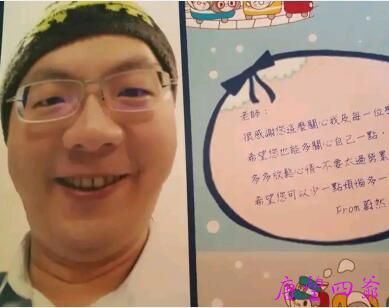 老師：
很感謝您這麼關心我及每一位學
希望您也能多關心自己一點
多多放鬆心情~不要太過勞累
希望您可以少一點煩惱多一
From 蔚然
唐堂四爺